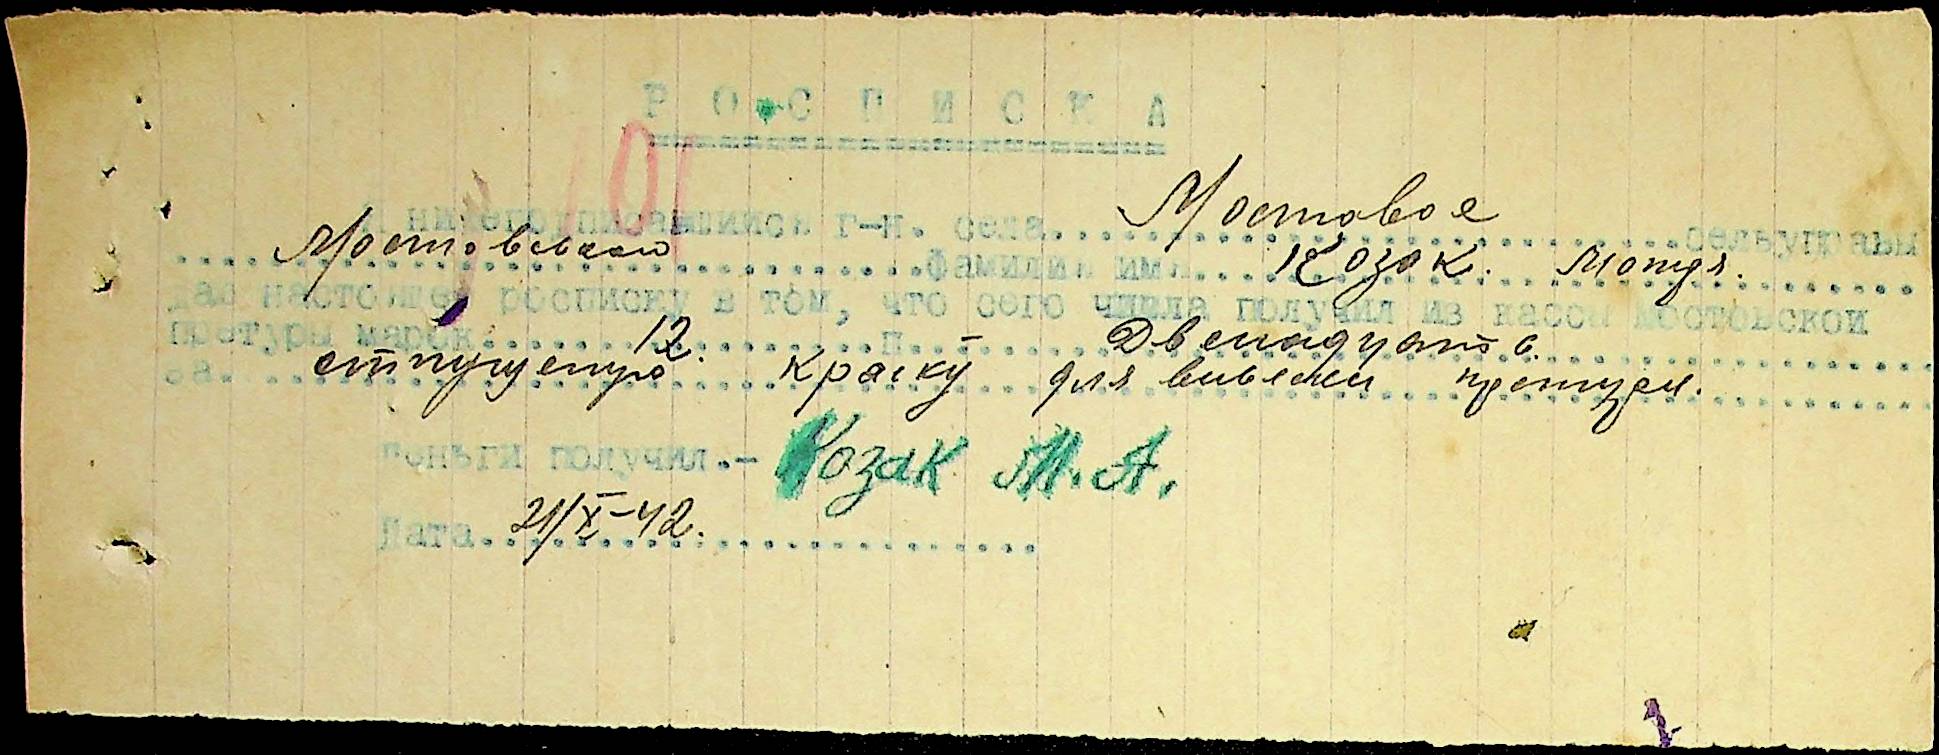 Р О С П И С К А
101
Я нижеподписавшийся г-н. села Мостовое сельуправы
Мостовского фамилия имя Козак. Мотя.
даю настоящее росписку в том, что сего числа получил из кассы Мостовской
претуры марок 12. П. Двенадцать.
за отпущеную краску для вивески претури.
Деньги получил.- Козак М. А.
Дата 21/X-42.